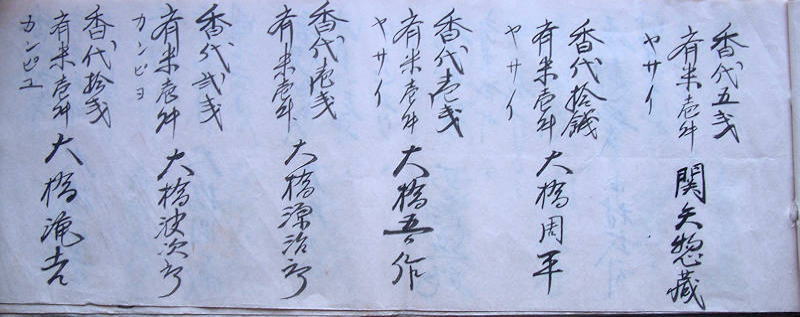 香代五戔
有米壱升
ヤサイ
関矢惣蔵
香代拾銭
有米壱升
ヤサイ
大橋周平
香代壱戔
有米壱升
ヤサイ
大橋吾作
香代壱戔
有米壱升
大橋源治郎
香代弐戔
有米壱升
カンピヨ
大橋波次郎
香代拾戔
有米壱升
カンピユ
大橋滝吉